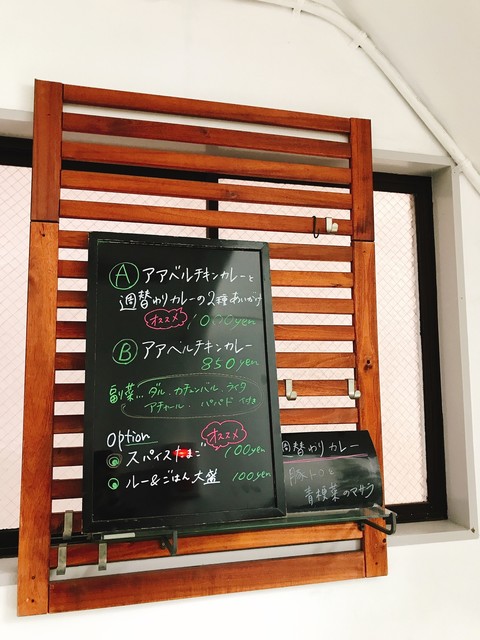 A アアベルチキンカレーと
週替わりカレーの2種あいがけ
オススメ 1000yen
B アアベルチキンカレー
850yen
副菜… ダル、カチュンバル、ライタ
アチャール、パパド 付き
Option
オススメ
スパイスたまご 100yen
ルー&ごはん大盛 100yen
週替わりカレー
青梗菜のマサラ